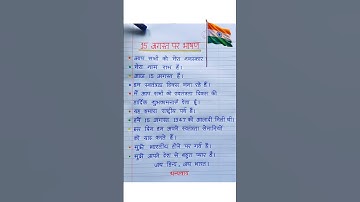 15 अगस्त पर भाषण
आप सभी को मेरा नमस्कार
मेरा नाम राम है।
आज 15 अगस्त है।
हम स्वतंत्रता दिवस मना रहे हैं।
मैं आप सभी को स्वतंत्रता दिवस की
हार्दिक शुभकामनाएँ देता हूँ।
यह हमारा राष्ट्रीय पर्व है।
हमें 15 अगस्त, 1947 को आजादी मिली थी।
इस दिन हम अपने स्वतंत्रता सेनानियों
को याद करते हैं।
मुझे भारतीय होने पर गर्व है।
मुझे अपने देश से बहुत प्यार है।
जय हिन्द, जय भारत।
धन्यवाद